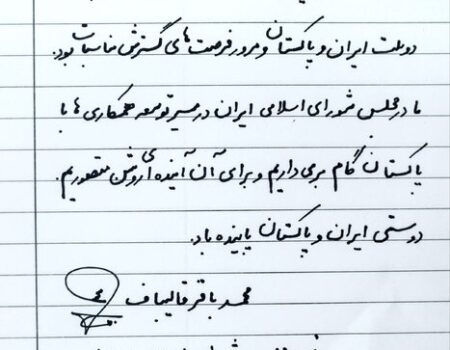 دو ملت ایران و پاکستان و مرور فرصت های گسترش مناسبات بود.
ما در مجلس شورای اسلامی ایران در مسیر توسعه همکاری ها با
پاکستان گام برمی داریم و برای آن آینده ای روشن متصوریم.
دوستی ایران و پاکستان پاینده باد.
محمد باقر قالیباف